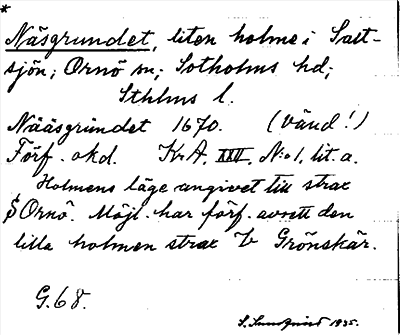 *
Näsgrundet, liten holme i Salt-
sjön; Ornö sn; Sotholms hd;
Sthlms l.
Nääsgrundet 1670. (Vänd!)
Förf. okd. KrA, XXV, No 1, lit. a.
Holmens läge angivet till strax
S Ornö. Möjl. har förf. avsett den
lilla holmen strax V Grönskär.
G.68.
S. Sundqvist 1935.